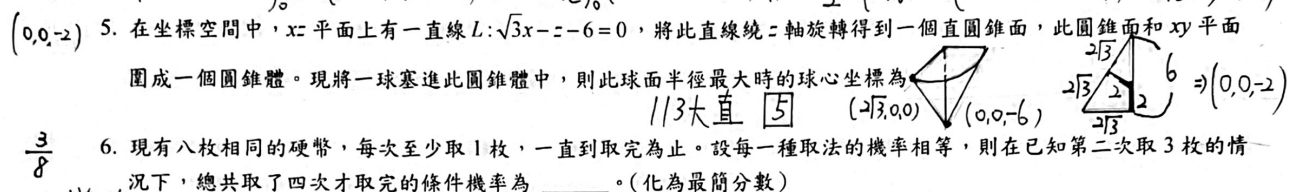 (0,0,-2) 5. 在坐標空間中，xz 平面上有一直線 L:√3x-z-6=0，將此直線繞 z 軸旋轉得到一個直圓錐面，此圓錐面和 xy 平面
圍成一個圓錐體。現將一球塞進此圓錐體中，則此球面半徑最大時的球心坐標為
113大直 5 (2√3,0,0) (0,0,-6) 2√3 2√3 2√3 2 2 6 ⇒(0,0,-2)
3/8 6. 現有八枚相同的硬幣，每次至少取 1 枚，一直到取完為止。設每一種取法的機率相等，則在已知第二次取 3 枚的情
況下，總共取了四次才取完的條件機率為 ______。(化為最簡分數)